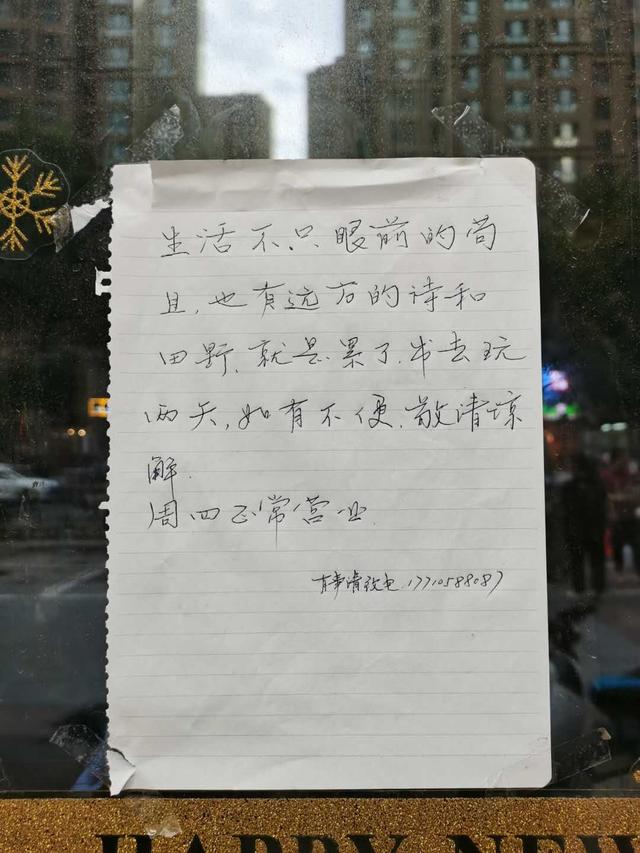 生活不只眼前的苟
且,也有远方的诗和
田野.就是累了.出去玩
两天,如有不便.敬请谅
解.
周四正常营业.
有事请致电.17710588087
HAPPY NEW